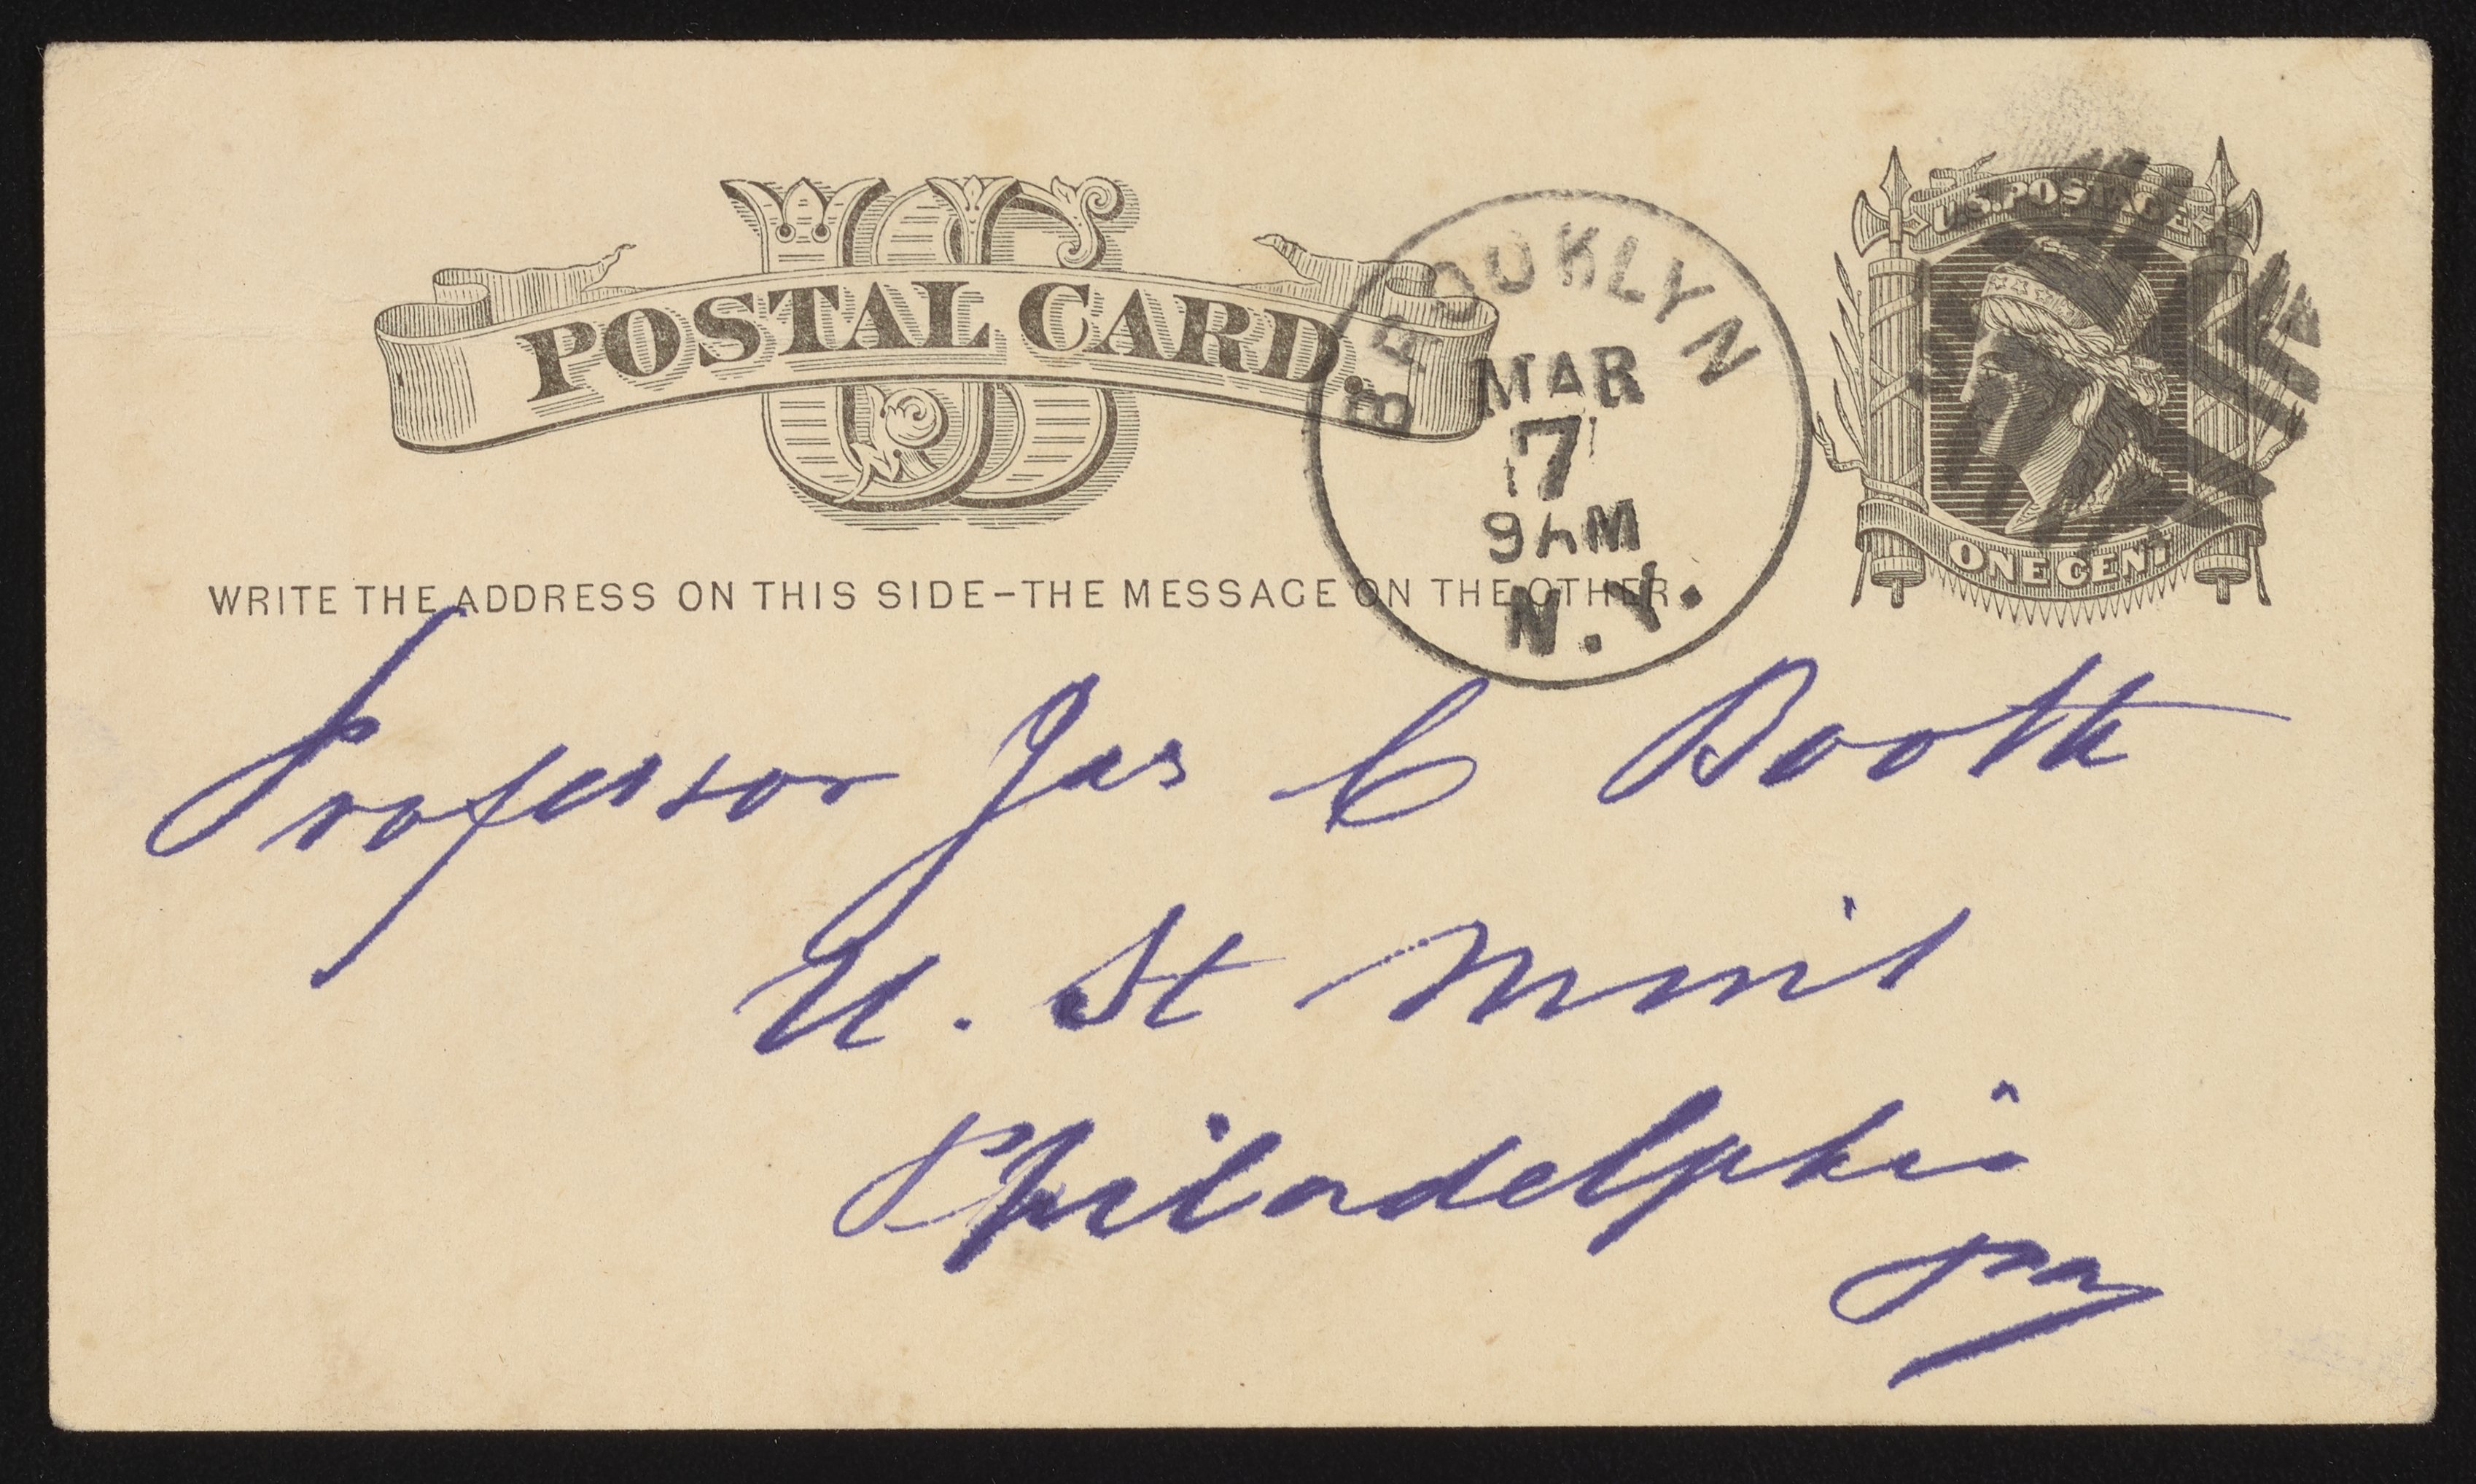 US
POSTAL CARD.
BROOKLYN
MAR
7
9AM
N.Y.
U.S. POSTAGE
ONE CENT
WRITE THE ADDRESS ON THIS SIDE-THE MESSAGE ON THE OTHER.
Professor Jas C Booth
U. St Mint
Philadelphia
Pa